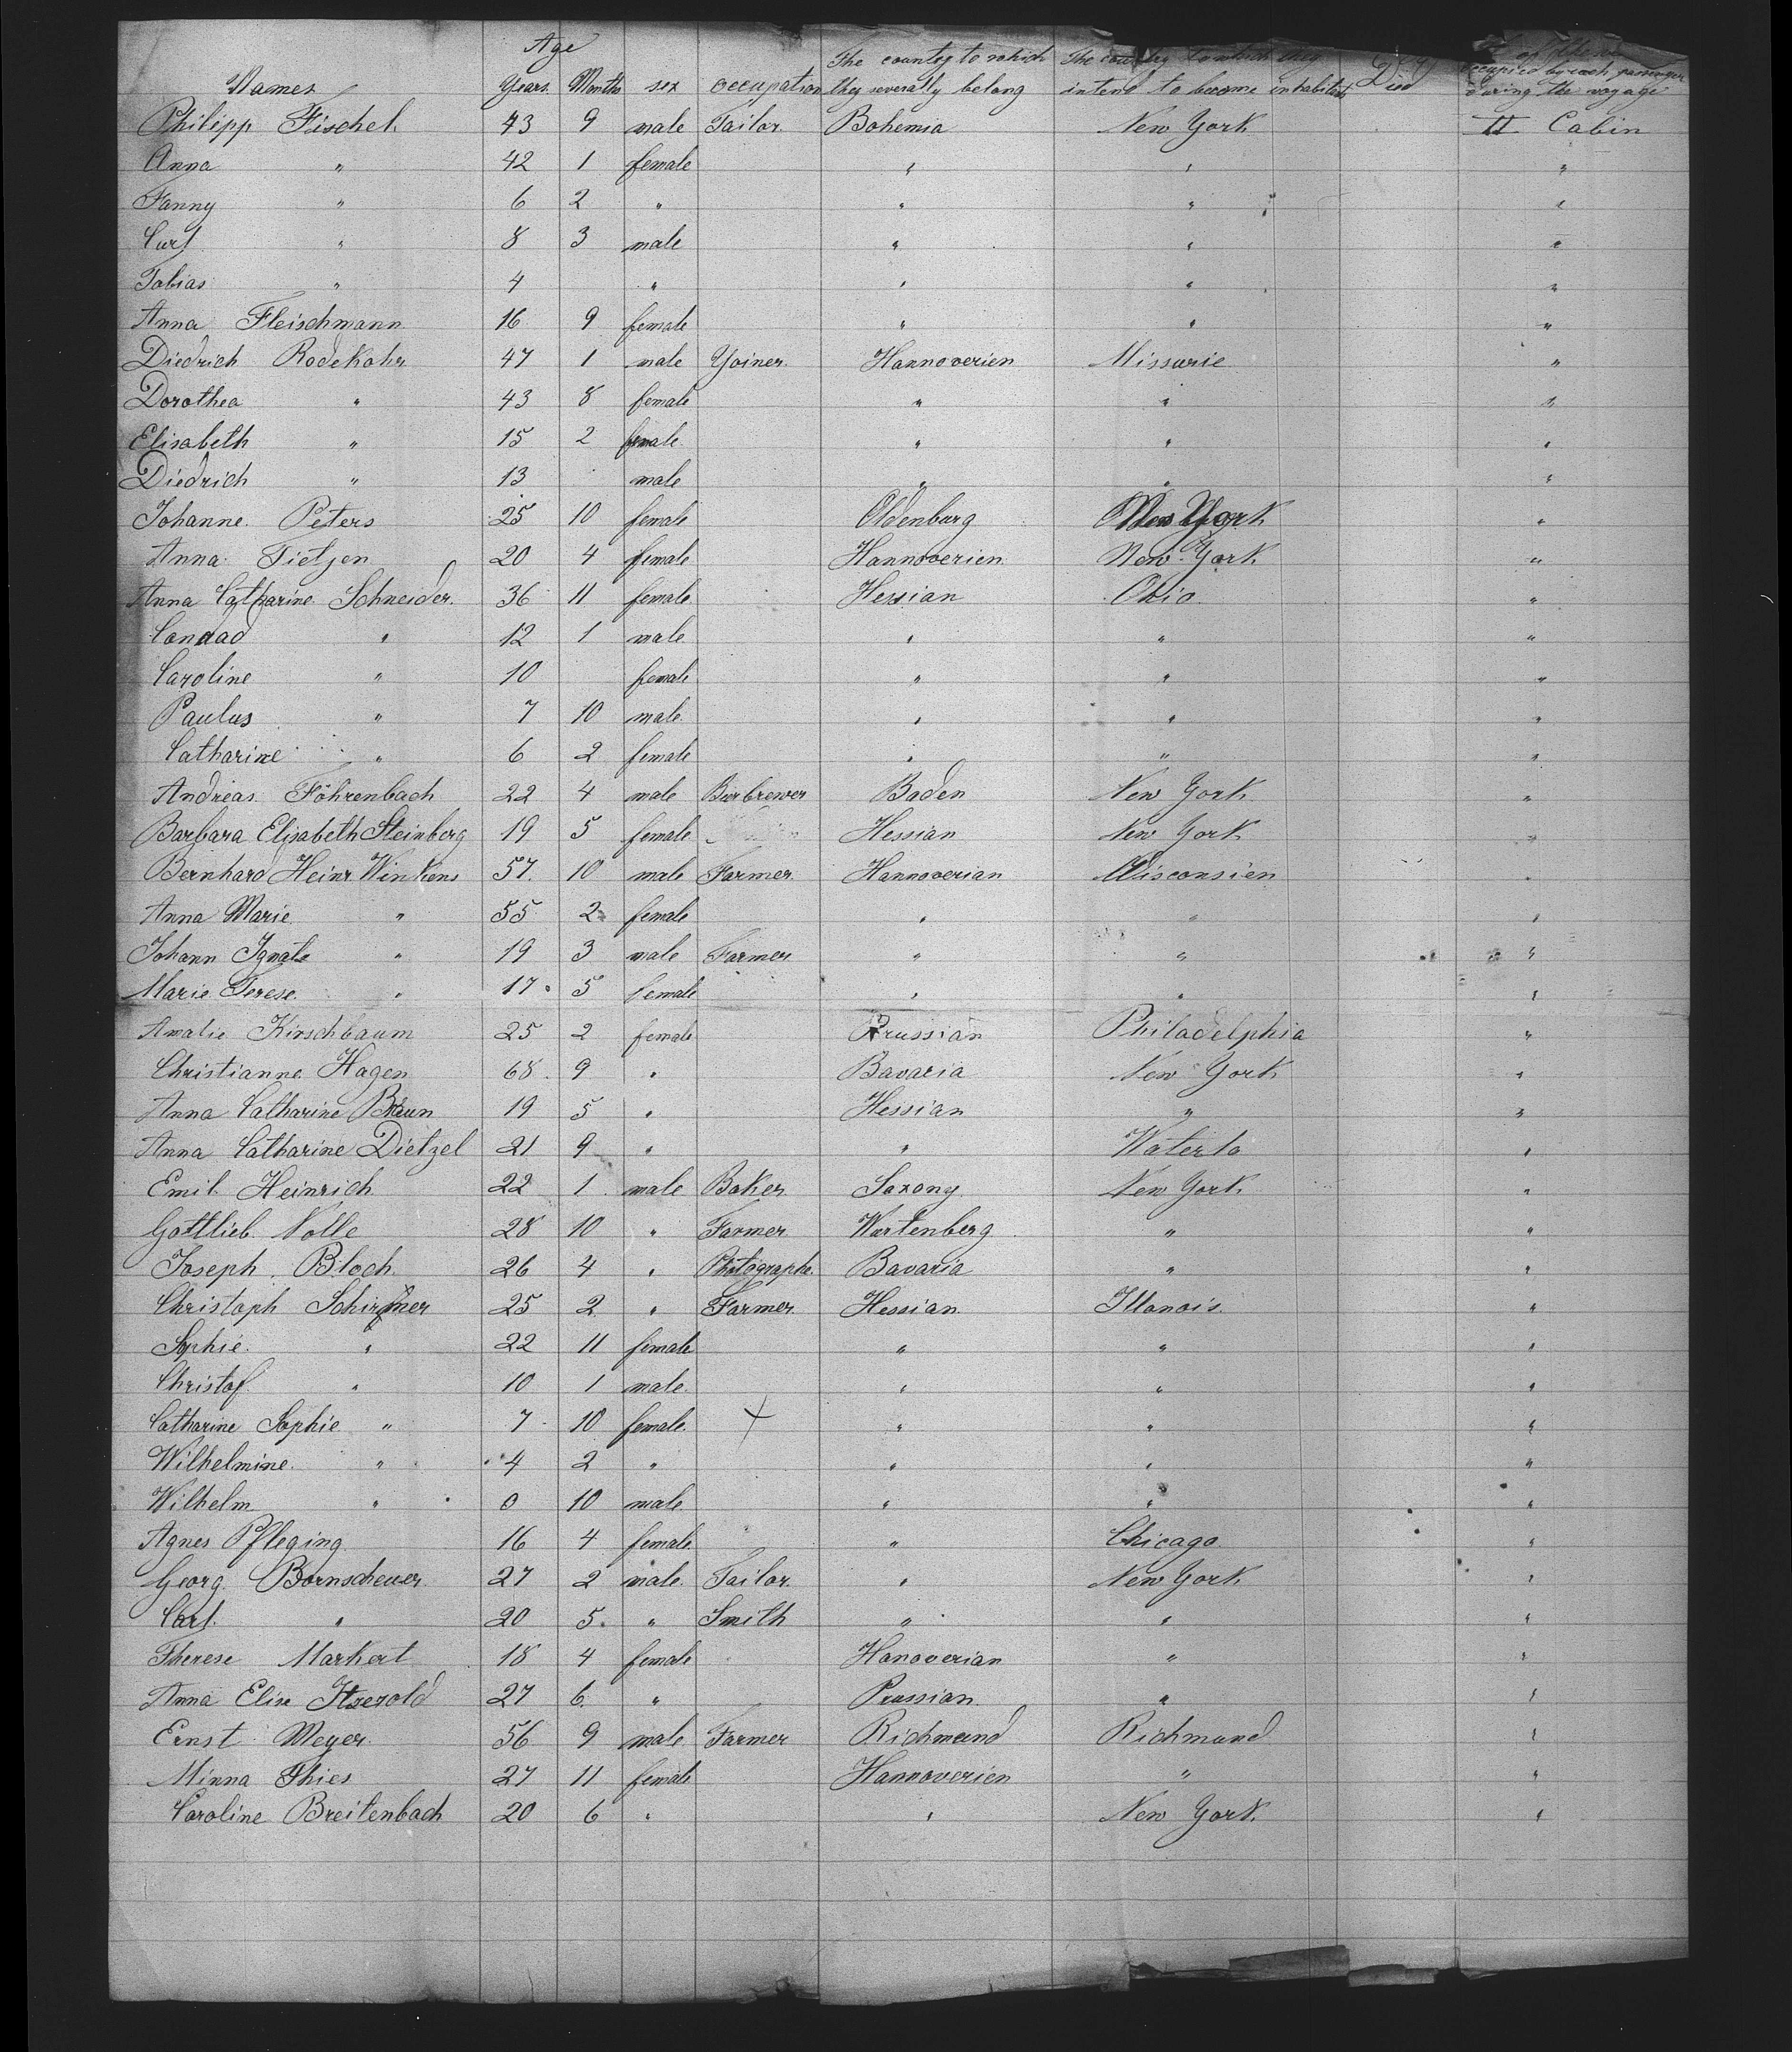 Age
The country to which The country to which they
Names Years. Months sex occupation they severally belong intend to become inhabitants Died occupied by each passenger during the voyage
Philipp Fischel 43 9 male Tailor Bohemia New York II Cabin
Anna " 42 1 female " " "
Fanny " 6 2 " " " "
Curl " 8 3 male " " "
Tobias " 4 " " " "
Anna Fleischmann 16 9 female " " "
Diedrich Rodekohr 47 1 male Yoiner. Hannoverien Missurie "
Dorothea " 43 8 female " " "
Elisabeth " 15 2 female " " "
Diedrich " 13 male " " "
Johanne. Peters 25 10 female Oldenburg New York "
Anna Tietjen 20 4 female Hannoverien New York "
Anna Catharine Schneider. 36 11 female Hessian Ohio "
Conrad " 12 1 male " " "
Caroline " 10 female " " "
Paulus " 7 10 male " " "
Catharine " 6 2 female " " "
Andreas Föhrenbach 22 4 male Bierbrewer Baden New York "
Barbara Elisabeth Steinberg 19 5 female Hessian New York "
Bernhard Heinr. Winkens 57. 10 male Farmer Hannoverian Wisconsien "
Anna Marie " 55 2 female " " "
Johann Ignatz " 19 3 male Farmer " " "
Marie Terese " 17 5 female " " "
Amalie Kirschbaum 25 2 female Prussian Philadelphia "
Christianne Hagen 68 9 " Bavaria New York "
Anna Catharine Braun 19 5 " Hessian " "
Anna Catharine Dietzel 21 9 " " Waterlo "
Emil Heinrich 22 1 male Baker Saxony New York "
Gottlieb Nolle 28 10 " Farmer Wurtenberg " "
Joseph Bloch 26 4 " Photographe. Bavaria " "
Christoph Schirmer 25 2 " Farmer Hessian Illanois "
Sophie " 22 11 female " " "
Christof " 10 1 male " " "
Catharine Sophie " 7 10 female. " " "
Wilhelmine " 4 2 " " " "
Wilhelm " 0 10 male " " "
Agnes Pfleging 16 4 female " Chicago "
Georg Bornscheuer 27 2 male Tailor " New York "
Carl " 20 5 " Smith " " "
Therese Markert 18 4 female Hanoverian " "
Anna Elise 27 6 " Prussian " "
Ernst Meyer 56 9 male Farmer Richmund Richmund "
Minna Thies 27 11 female Hannoverien " "
Caroline Breitenbach 20 6 " " New York "